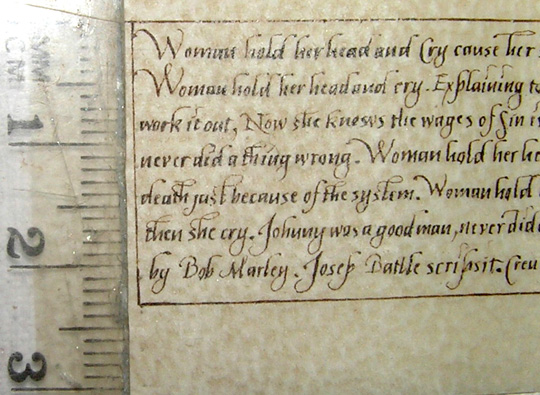 MM
CM
1
2
3
Woman hold her head and Cry cause her
Woman hold her head and cry. Explaining to
work it out, Now she knows the wages of sin
never did a thing wrong. Woman hold her
death just because of the system. Woman hold
then she cry. Johnny was a good man, never did
by Bob Marley. Josep Batlle scripsit.